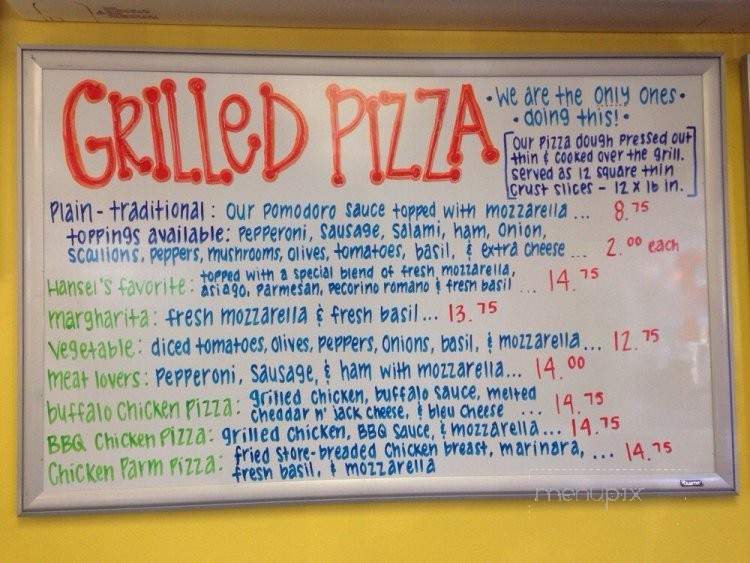 GRILLED PIZZA
• We are the only ones •
• doing this! •
[our pizza dough pressed out
thin & cooked over the grill.
served as 12 square thin
crust slices - 12 x 16 in.]
Plain - traditional: our pomodoro sauce topped with mozzarella ... 8.75
toppings available: pepperoni, sausage, salami, ham, onion,
scallions, peppers, mushrooms, olives, tomatoes, basil, & extra cheese ... 2.00 each
Hansel's favorite: topped with a special blend of fresh mozzarella,
asiago, parmesan, pecorino romano & fresh basil ... 14.75
margharita: fresh mozzarella & fresh basil ... 13.75
vegetable: diced tomatoes, olives, peppers, onions, basil, & mozzarella ... 12.75
meat lovers: pepperoni, sausage, & ham with mozzarella... 14.00
buffalo chicken pizza: grilled chicken, buffalo sauce, melted
cheddar n' jack cheese, & bleu cheese ... 14.75
BBQ chicken pizza: grilled chicken, BBQ sauce, & mozzarella ... 14.75
chicken parm pizza: fried store-breaded chicken breast, marinara, ... 14.75
fresh basil, & mozzarella
menupix